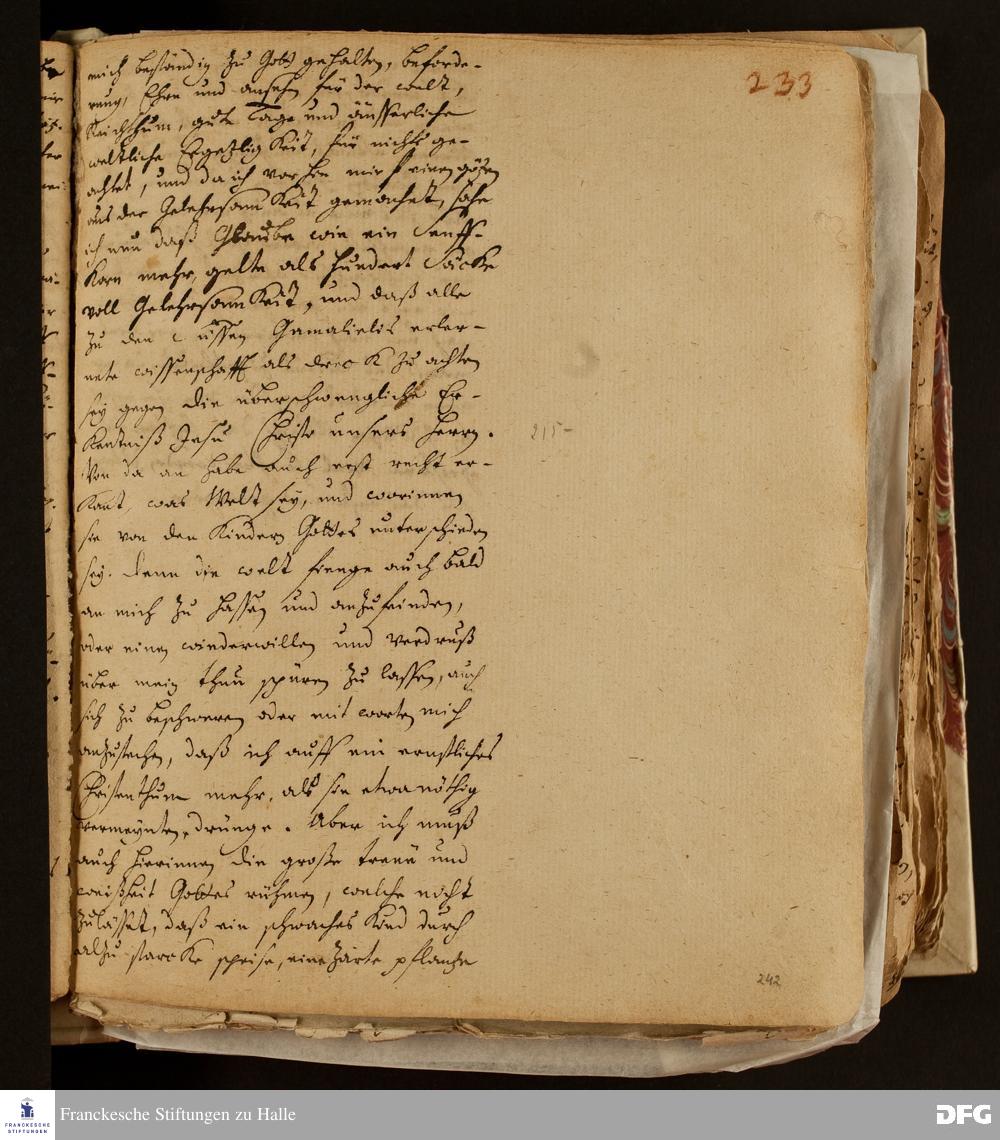 233
mich beständig zu Gott gehalten, beforde-
rung, Ehre und ansehn für der welt,
Reichthum, gute Tage und äusserliche
weltliche Ergetzligkeit, für nichts ge-
achtet, und da ich vorhin mir einen götzen
aus der Gelehrsamkeit gemachet, sahe
ich nun daß Glaube wie ein Senff-
korn mehr gelte als hundert Säcke
voll Gelehrsamkeit, und daß alle
zu den Füssen Gamalielis erler-
nete wissenschafft als dreck zu achten
sey gegen die überschwengliche Er-
kentniß Jesu Christi unsers Herrn.
Von da an habe auch erst recht er-
kant, was Welt sey, und worinnen
sie von den Kindern Gottes unterschieden
sey. Denn die welt fienge auch bald
an mich zu hassen und anzufeinden,
oder einen wiederwillen und verdruß
über mein thun spüren zu lassen, auch
sich zu beschweren oder mit worten mich
anzustechen, daß ich auff ein ernstliches
Christenthum mehr, als sie etwa nöthig
vermeynten, drünge. Aber ich muß
auch hierinnen die große treue und
weißheit Gottes rühmen, welche nicht
zulässet, daß ein schwaches Kind durch
alzu starcke speise, eine zarte pflantze
215-
242
FRANCKESCHE
STIFTUNGEN
Franckesche Stiftungen zu Halle
DFG